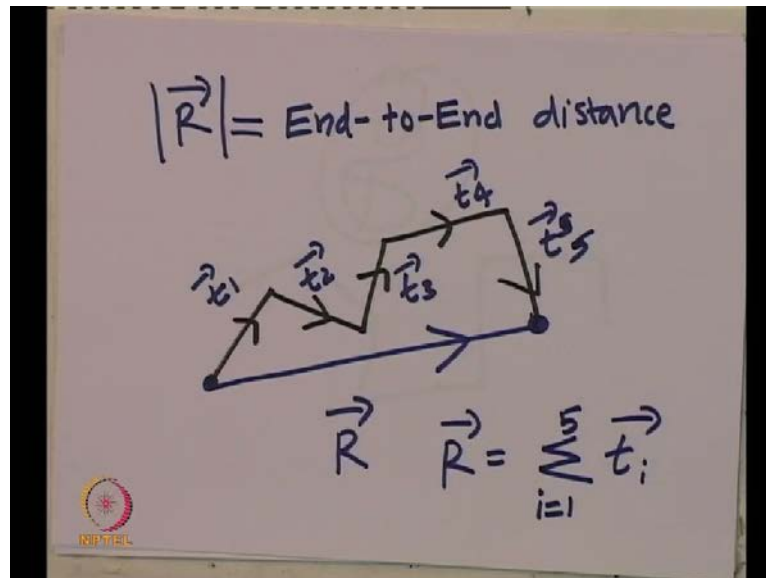 |R⃗| = End-to-End distance
t⃗1
t⃗2
t⃗3
t⃗4
t⃗5
R⃗
R⃗ = Σ_{i=1}^{5} t⃗_i
NPTEL